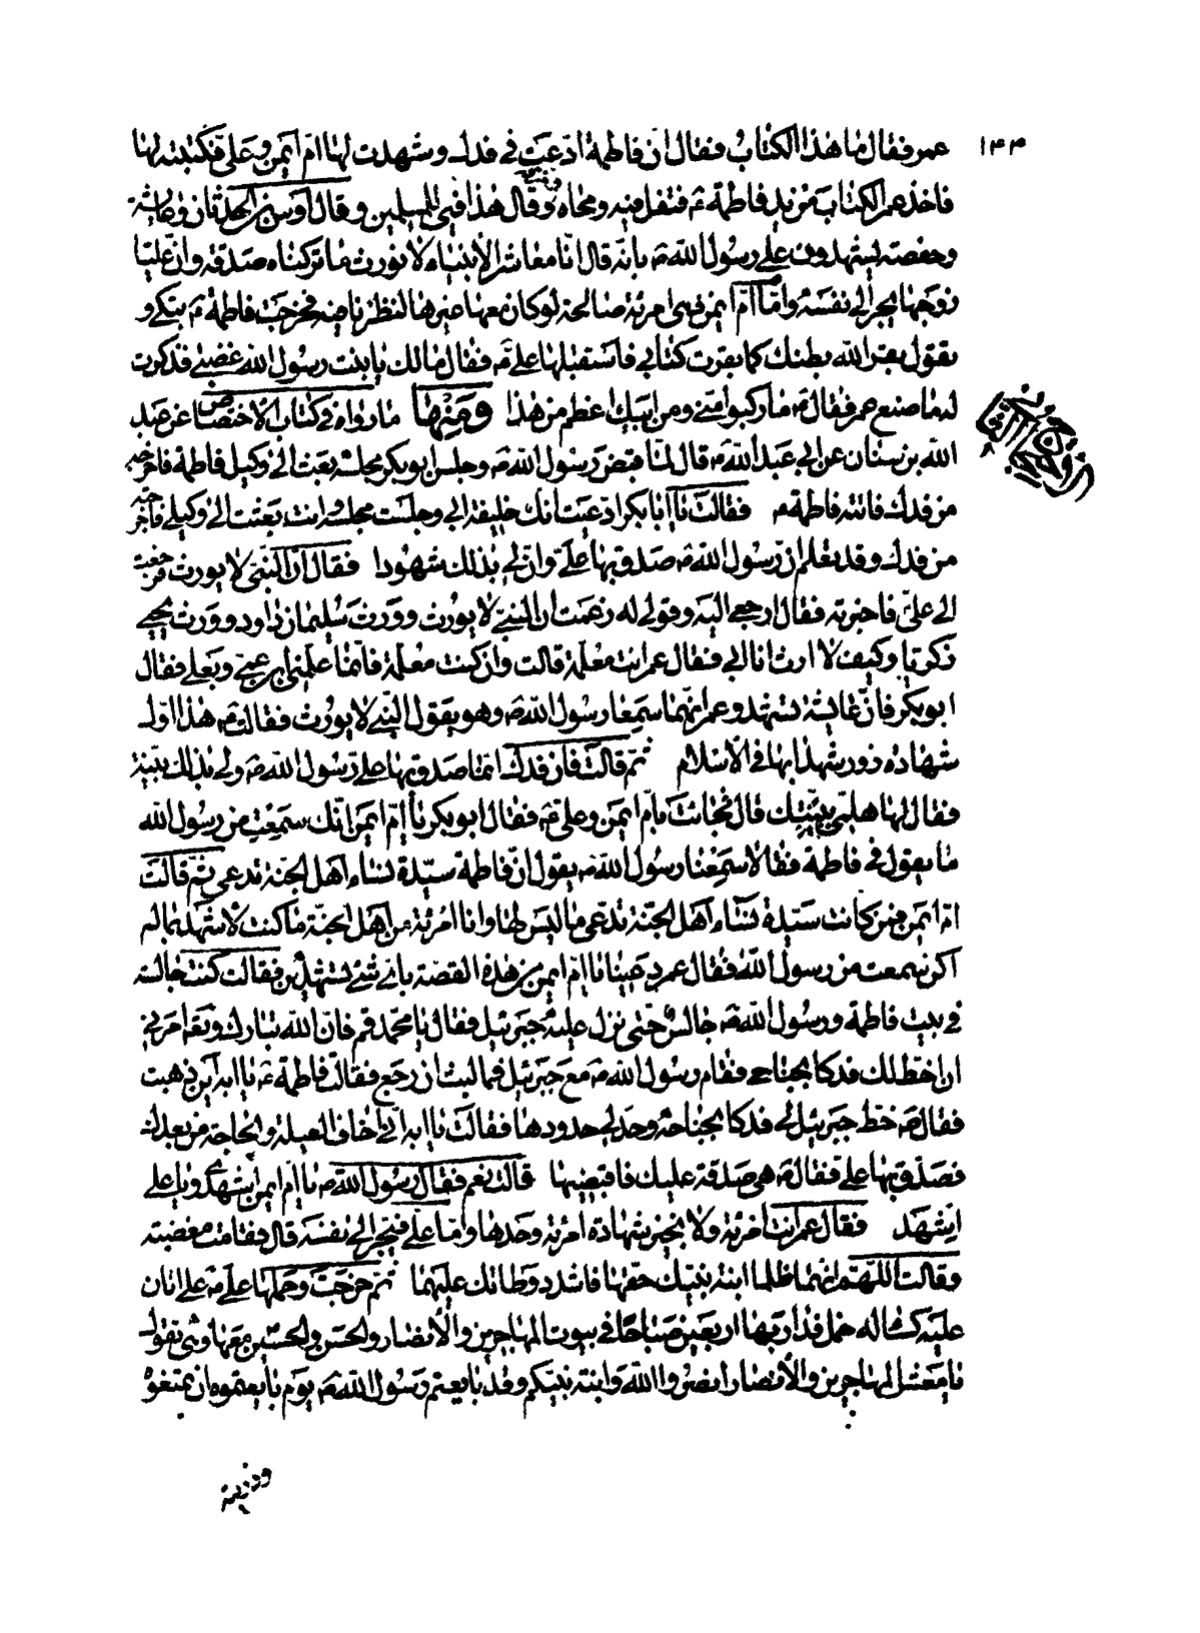 ١٤٣
عمر فقال ما هذا الكتاب فقال ان فاطمة ادّعت في فدك وشهدت لها امّ ايمن وعلي فكتبته لها
فاخذ عمر الكتاب من يد فاطمة ع فتفل فيه ومحاه وقال هذا فيئ للمسلمين وقال اوس بن الحدثان وعايشة
وحفصة يشهدون على رسول الله ص بانّه قال انّا معاشر الأنبياء لا نورث ما تركناه صدقة وانّ عليّا
زوجها يجر الى نفسه وامّا امّ ايمن فهى امرئة صالحة لو كان معها غيرها لنظرنا فيه فخرجت فاطمة ع تبكى و
تقول بقر الله بطنك كما بقرت كتابي فاستقبلها علي ع فقال مالك يا بنت رسول الله غضبى فذكرت
له ما صنع عمر فقال ع ما ركبوا منّي ومن ابيك اعظم من هذا ومنها ما رواه في كتاب الاختصاص عن عبد
الله بن سنان عن ابي عبد الله ع قال لمّا قبض رسول الله ص وجلس ابو بكر مجلسه بعث الى وكيل فاطمة فاخرجه
من فدك فاتته فاطمة ع فقالت يا ابا بكر ادّعيت انك خليفة ابي وجلست مجلسه وانت بعثت الى وكيلي فاخرجته
من فدك وقد تعلم ان رسول الله ص صدق بها علىّ وان لي بذلك شهودا فقال ان النبيّ لا يورث فرجعت
الى عليّ فاخبرته فقال ارجعي اليه وقولي له زعمت ان النبيّ لا يورث وورث سليمان داود وورث يحيى
زكريا وكيف لا ارث انا ابي فقال عمر انت معلّمة قالت وان كنت معلّمة فانّما علّمني ابن عمّي وبعلي فقال
ابو بكر فانّ عايشة تشهد وعمر انّهما سمعا رسول الله ص وهو يقول النبي لا يورث فقالت ع هذا اول
شهادة زور شهدا بها في الاسلام ثمّ قالت فان فدك انّما صدق بها علىّ رسول الله ص ولي بذلك بيّنة
فقال لها هلمّي ببيّنتك قال فجائت بامّ ايمن وعلي ع فقال ابو بكر يا امّ ايمن انّك سمعت من رسول الله
ما يقول في فاطمة فقالا سمعنا رسول الله ص يقول انّ فاطمة سيّدة نساء اهل الجنّة ثم قالت
امّ ايمن فمن كانت سيّدة نساء اهل الجنّة تدّعي ما ليس لها وانا امرئة من اهل الجنّة ما كنت لأشهد بما لم
اكن سمعت من رسول الله فقال عمر دعينا يا امّ ايمن من هذه القصة باىّ شئ تشهدين فقالت كنت جالسة
في بيت فاطمة ورسول الله ص جالس حتى نزل عليه جبرئيل فقال يا محمّد قم فان الله تبارك وتعا امرني
ان اخطّ لك فدكا بجناحي فقام رسول الله ص مع جبرئيل فما لبث ان رجع فقالت فاطمة ع يا ابه اين ذهبت
فقال ص خطّ جبرئيل لي فدكا بجناحه وحدّ لي حدودها فقالت يا ابه انّي اخاف العيلة والحاجة من بعدك
فصدّق بها علىّ فقال ص هي صدقة عليك فاقبضيها قالت نعم فقال رسول الله ص يا امّ ايمن اشهدي ويا علي
اشهد فقال عمر انت امرئة ولا نجيز شهادة امرئة وحدها وامّا علي فيجر الى نفسه قال فقامت مغضبة
وقالت اللهمّ انهما ظلما ابنة نبيّك حقها فاشدد وطاتك عليهما ثمّ خرجت وحملها علي ع على اتان
عليه كساء له خمل فدار بها اربعين صباحا في بيوت المهاجرين والأنصار والحسن والحسين معها وهى تقول
يا معشر المهاجرين والأنصار انصروا الله وابنة نبيّكم وقد بايعتم رسول الله ص يوم بايعتموه ان تمنعوه
وذريته